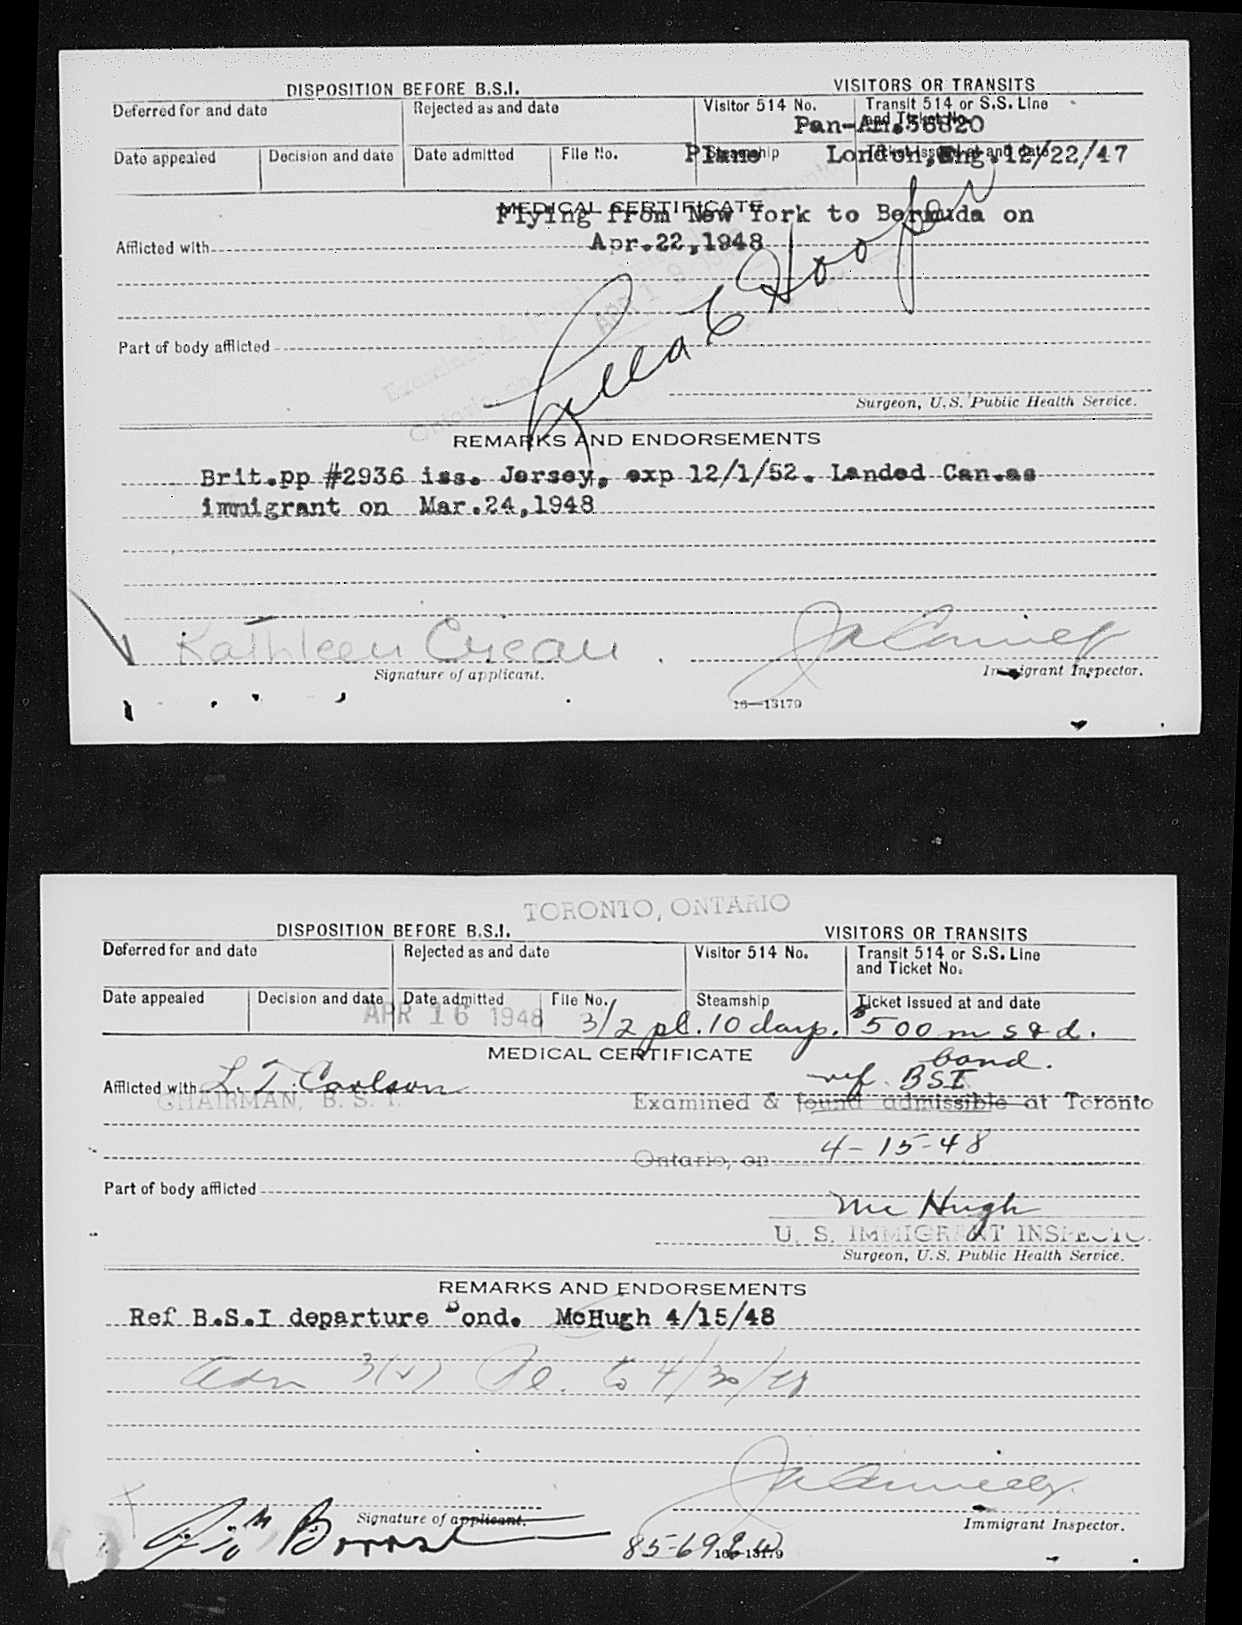 DISPOSITION BEFORE B.S.I. VISITORS OR TRANSITS
Deferred for and date Rejected as and date Visitor 514 No. Transit 514 or S.S. Line
and Ticket No.
Pan-Am.56820
Date appealed Decision and date Date admitted File No. Steamship Ticket issued at and date
Plane London, Eng. 12/22/47
MEDICAL CERTIFICATE
Flying from New York to Bermuda on
Afflicted with Apr.22,1948
Part of body afflicted
Surgeon, U.S. Public Health Service.
REMARKS AND ENDORSEMENTS
Brit.pp #2936 iss. Jersey, exp 12/1/52. Landed Can.as
immigrant on Mar.24,1948
Kathleen Crean
Signature of applicant. Immigrant Inspector.
16—13179
TORONTO, ONTARIO
DISPOSITION BEFORE B.S.I. VISITORS OR TRANSITS
Deferred for and date Rejected as and date Visitor 514 No. Transit 514 or S.S. Line
and Ticket No.
Date appealed Decision and date Date admitted File No. Steamship Ticket issued at and date
APR 16 1948 3/2 pl. 10 days. $500
MEDICAL CERTIFICATE
bond.
ref. BSI
Afflicted with L. T. Carlson
CHAIRMAN, B. S. I. Examined & found admissible at Toronto
Ontario, on 4-15-48
Part of body afflicted
McHugh
U. S. IMMIGRANT INSPECTO
Surgeon, U.S. Public Health Service.
REMARKS AND ENDORSEMENTS
Ref B.S.I departure Bond. McHugh 4/15/48
adm 3(2) Pl. to 4/30/48
Signature of applicant. Immigrant Inspector.
16—13179